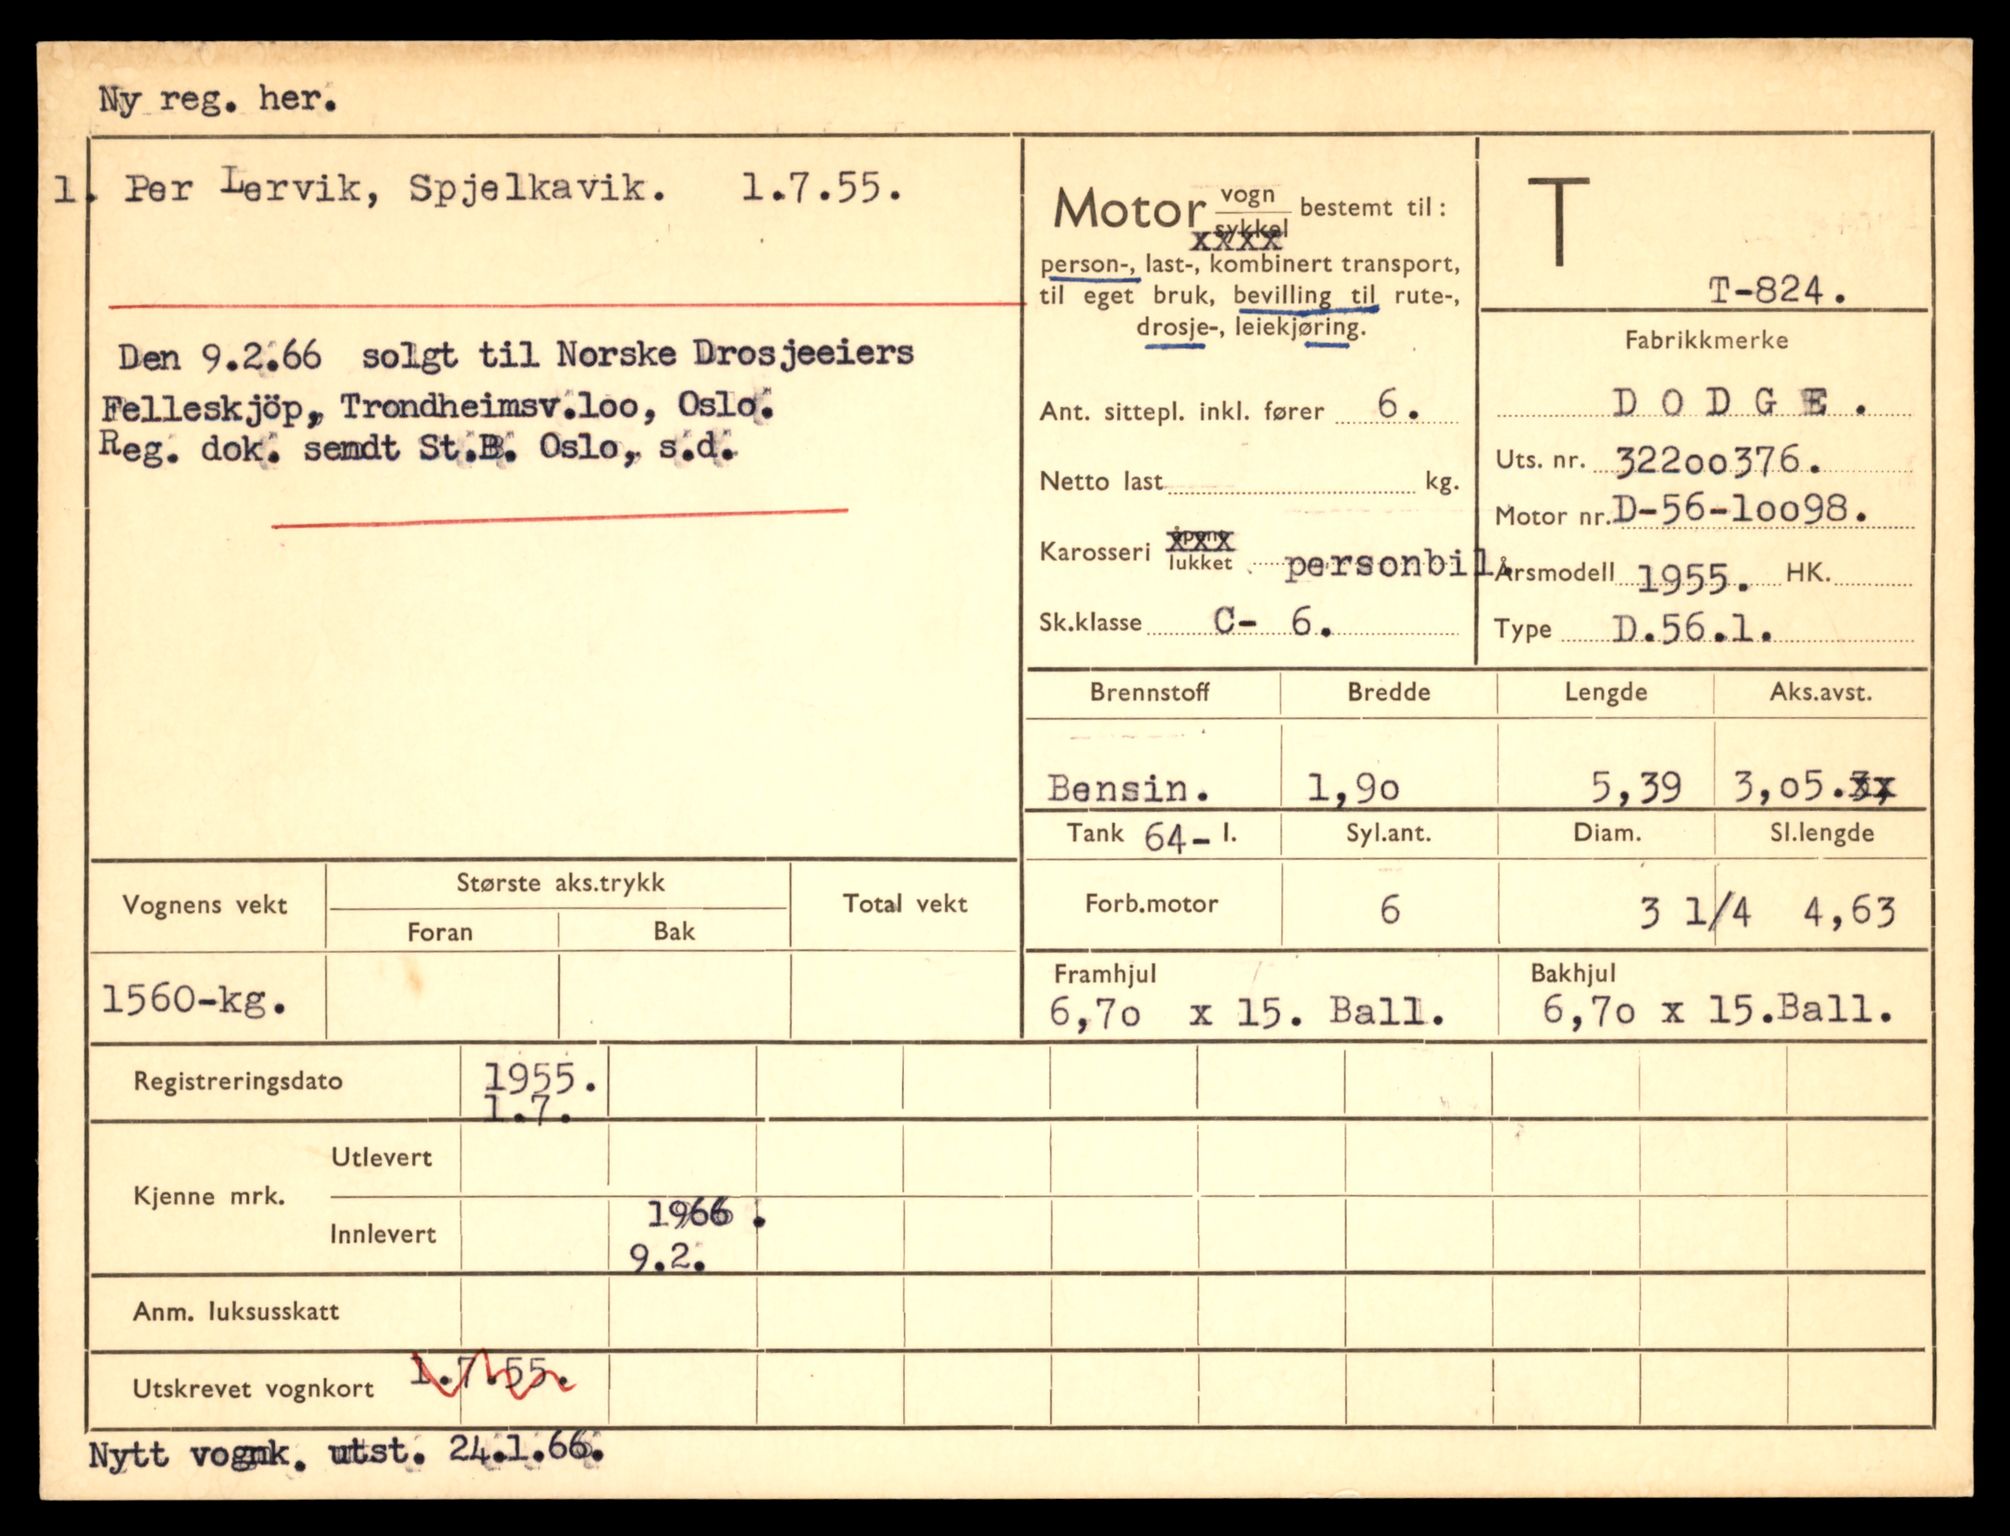 Ny reg. her.
1. Per Lervik, Spjelkavik. 1.7.55.
Den 9.2.66 solgt til Norske Drosjeeiers
Felleskjöp, Trondheimsv.loo, Oslo.
Reg. dok. sendt St.B. Oslo, s.d.
Motor vogn bestemt til:
sykkel
xxxx
person-, last-, kombinert transport,
til eget bruk, bevilling til rute-,
drosje-, leiekjøring.
Ant. sittepl. inkl. fører 6.
Netto last kg.
Karosseri åpent xxx
lukket personbil.
Sk.klasse C- 6.
T
T-824.
Fabrikkmerke
D O D G E .
Uts. nr. 322oo376.
Motor nr. D-56-loo98.
Årsmodell 1955. HK.
Type D.56.1.
Brennstoff Bredde Lengde Aks.avst.
Bensin. 1,9o 5,39 3,o5.3xx
Tank 64- l. Syl.ant. Diam. Sl.lengde
Forb.motor 6 3 1/4 4,63
Framhjul Bakhjul
6,7o x 15. Ball. 6,7o x 15.Ball.
Vognens vekt Største aks.trykk Total vekt
Foran Bak
1560-kg.
Registreringsdato 1955.
1.7.
Kjenne mrk. Utlevert
Innlevert 1966 .
9.2.
Anm. luksusskatt
Utskrevet vognkort 1.7.55.
Nytt vognk. utst. 24.1.66.